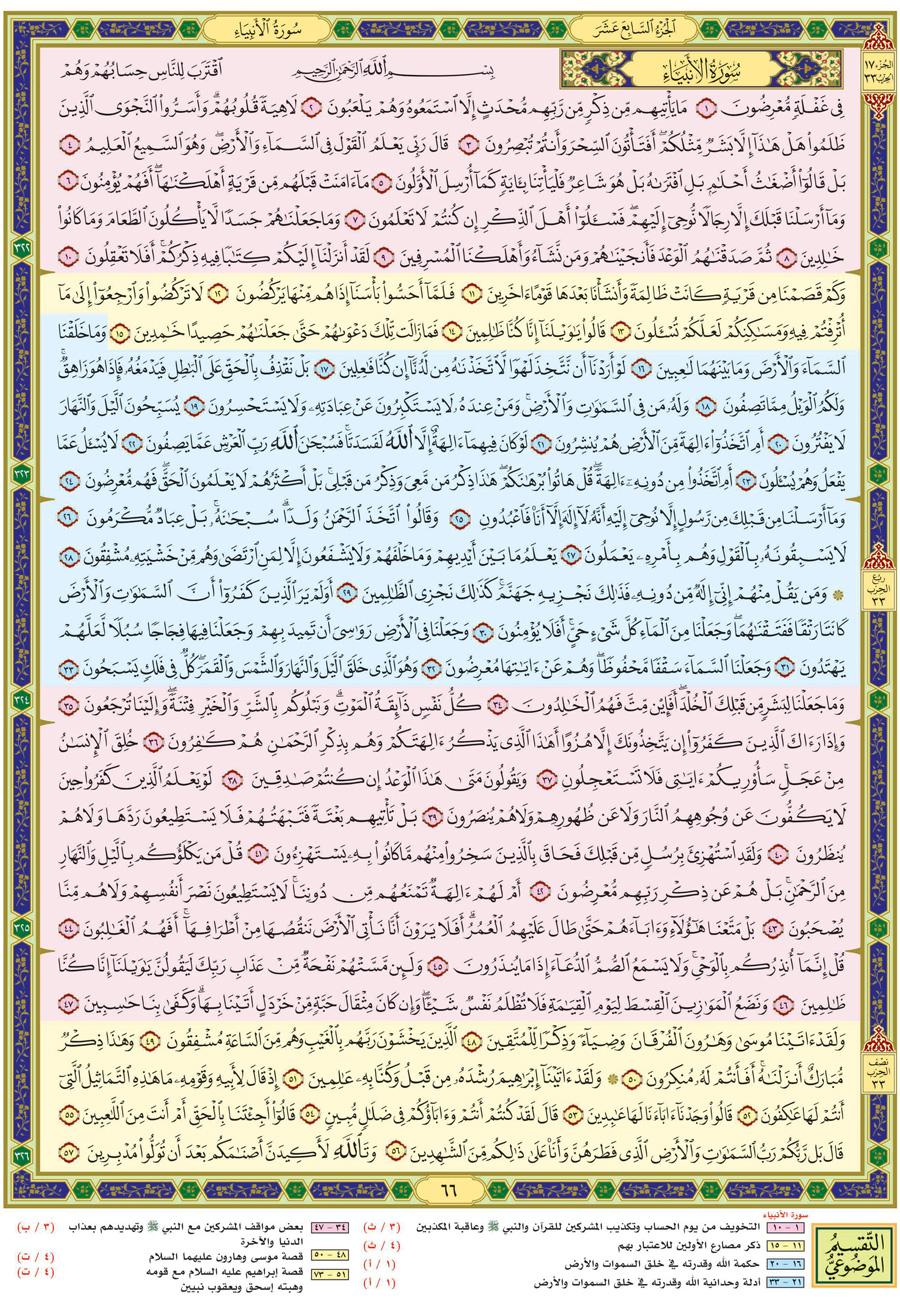 الجُزْءُ السَّابِعَ عَشَرَ
سُورَةُ الْأَنْبِيَاءِ
الجُزء ١٧
الحِزب ٣٣
سُورَةُ الْأَنْبِيَاءِ بِسْمِ ٱللَّهِ ٱلرَّحْمَٰنِ ٱلرَّحِيمِ ٱقْتَرَبَ لِلنَّاسِ حِسَابُهُمْ وَهُمْ
فِى غَفْلَةٍ مُّعْرِضُونَ ١ مَا يَأْتِيهِم مِّن ذِكْرٍ مِّن رَّبِّهِم مُّحْدَثٍ إِلَّا ٱسْتَمَعُوهُ وَهُمْ يَلْعَبُونَ ٢ لَاهِيَةً قُلُوبُهُمْ ۗ وَأَسَرُّوا۟ ٱلنَّجْوَى ٱلَّذِينَ
ظَلَمُوا۟ هَلْ هَٰذَآ إِلَّا بَشَرٌ مِّثْلُكُمْ ۖ أَفَتَأْتُونَ ٱلسِّحْرَ وَأَنتُمْ تُبْصِرُونَ ٣ قَالَ رَبِّى يَعْلَمُ ٱلْقَوْلَ فِى ٱلسَّمَآءِ وَٱلْأَرْضِ ۖ وَهُوَ ٱلسَّمِيعُ ٱلْعَلِيمُ ٤
بَلْ قَالُوٓا۟ أَضْغَٰثُ أَحْلَٰمٍۭ بَلِ ٱفْتَرَىٰهُ بَلْ هُوَ شَاعِرٌ فَلْيَأْتِنَا بِـَٔايَةٍ كَمَآ أُرْسِلَ ٱلْأَوَّلُونَ ٥ مَآ ءَامَنَتْ قَبْلَهُم مِّن قَرْيَةٍ أَهْلَكْنَٰهَآ ۖ أَفَهُمْ يُؤْمِنُونَ ٦
وَمَآ أَرْسَلْنَا قَبْلَكَ إِلَّا رِجَالًا نُّوحِىٓ إِلَيْهِمْ ۖ فَسْـَٔلُوٓا۟ أَهْلَ ٱلذِّكْرِ إِن كُنتُمْ لَا تَعْلَمُونَ ٧ وَمَا جَعَلْنَٰهُمْ جَسَدًا لَّا يَأْكُلُونَ ٱلطَّعَامَ وَمَا كَانُوا۟
خَٰلِدِينَ ٨ ثُمَّ صَدَقْنَٰهُمُ ٱلْوَعْدَ فَأَنجَيْنَٰهُمْ وَمَن نَّشَآءُ وَأَهْلَكْنَا ٱلْمُسْرِفِينَ ٩ لَقَدْ أَنزَلْنَآ إِلَيْكُمْ كِتَٰبًا فِيهِ ذِكْرُكُمْ ۖ أَفَلَا تَعْقِلُونَ ١٠
٣٢٢
وَكَمْ قَصَمْنَا مِن قَرْيَةٍ كَانَتْ ظَالِمَةً وَأَنشَأْنَا بَعْدَهَا قَوْمًا ءَاخَرِينَ ١١ فَلَمَّآ أَحَسُّوا۟ بَأْسَنَآ إِذَا هُم مِّنْهَا يَرْكُضُونَ ١٢ لَا تَرْكُضُوا۟ وَٱرْجِعُوٓا۟ إِلَىٰ مَآ
أُتْرِفْتُمْ فِيهِ وَمَسَٰكِنِكُمْ لَعَلَّكُمْ تُسْـَٔلُونَ ١٣ قَالُوا۟ يَٰوَيْلَنَآ إِنَّا كُنَّا ظَٰلِمِينَ ١٤ فَمَا زَالَت تِّلْكَ دَعْوَىٰهُمْ حَتَّىٰ جَعَلْنَٰهُمْ حَصِيدًا خَٰمِدِينَ ١٥ وَمَا خَلَقْنَا
ٱلسَّمَآءَ وَٱلْأَرْضَ وَمَا بَيْنَهُمَا لَٰعِبِينَ ١٦ لَوْ أَرَدْنَآ أَن نَّتَّخِذَ لَهْوًا لَّٱتَّخَذْنَٰهُ مِن لَّدُنَّآ إِن كُنَّا فَٰعِلِينَ ١٧ بَلْ نَقْذِفُ بِٱلْحَقِّ عَلَى ٱلْبَٰطِلِ فَيَدْمَغُهُۥ فَإِذَا هُوَ زَاهِقٌ ۚ
وَلَكُمُ ٱلْوَيْلُ مِمَّا تَصِفُونَ ١٨ وَلَهُۥ مَن فِى ٱلسَّمَٰوَٰتِ وَٱلْأَرْضِ ۚ وَمَنْ عِندَهُۥ لَا يَسْتَكْبِرُونَ عَنْ عِبَادَتِهِۦ وَلَا يَسْتَحْسِرُونَ ١٩ يُسَبِّحُونَ ٱلَّيْلَ وَٱلنَّهَارَ
لَا يَفْتُرُونَ ٢٠ أَمِ ٱتَّخَذُوٓا۟ ءَالِهَةً مِّنَ ٱلْأَرْضِ هُمْ يُنشِرُونَ ٢١ لَوْ كَانَ فِيهِمَآ ءَالِهَةٌ إِلَّا ٱللَّهُ لَفَسَدَتَا ۚ فَسُبْحَٰنَ ٱللَّهِ رَبِّ ٱلْعَرْشِ عَمَّا يَصِفُونَ ٢٢ لَا يُسْـَٔلُ عَمَّا
يَفْعَلُ وَهُمْ يُسْـَٔلُونَ ٢٣ أَمِ ٱتَّخَذُوا۟ مِن دُونِهِۦٓ ءَالِهَةً ۖ قُلْ هَاتُوا۟ بُرْهَٰنَكُمْ ۖ هَٰذَا ذِكْرُ مَن مَّعِىَ وَذِكْرُ مَن قَبْلِى ۗ بَلْ أَكْثَرُهُمْ لَا يَعْلَمُونَ ٱلْحَقَّ ۖ فَهُم مُّعْرِضُونَ ٢٤
٣٢٣
وَمَآ أَرْسَلْنَا مِن قَبْلِكَ مِن رَّسُولٍ إِلَّا نُوحِىٓ إِلَيْهِ أَنَّهُۥ لَآ إِلَٰهَ إِلَّآ أَنَا۠ فَٱعْبُدُونِ ٢٥ وَقَالُوا۟ ٱتَّخَذَ ٱلرَّحْمَٰنُ وَلَدًا ۗ سُبْحَٰنَهُۥ ۚ بَلْ عِبَادٌ مُّكْرَمُونَ ٢٦
لَا يَسْبِقُونَهُۥ بِٱلْقَوْلِ وَهُم بِأَمْرِهِۦ يَعْمَلُونَ ٢٧ يَعْلَمُ مَا بَيْنَ أَيْدِيهِمْ وَمَا خَلْفَهُمْ وَلَا يَشْفَعُونَ إِلَّا لِمَنِ ٱرْتَضَىٰ وَهُم مِّنْ خَشْيَتِهِۦ مُشْفِقُونَ ٢٨
رُبع الحِزب ٣٣
۞ وَمَن يَقُلْ مِنْهُمْ إِنِّىٓ إِلَٰهٌ مِّن دُونِهِۦ فَذَٰلِكَ نَجْزِيهِ جَهَنَّمَ ۚ كَذَٰلِكَ نَجْزِى ٱلظَّٰلِمِينَ ٢٩ أَوَلَمْ يَرَ ٱلَّذِينَ كَفَرُوٓا۟ أَنَّ ٱلسَّمَٰوَٰتِ وَٱلْأَرْضَ
كَانَتَا رَتْقًا فَفَتَقْنَٰهُمَا ۖ وَجَعَلْنَا مِنَ ٱلْمَآءِ كُلَّ شَىْءٍ حَىٍّ ۖ أَفَلَا يُؤْمِنُونَ ٣٠ وَجَعَلْنَا فِى ٱلْأَرْضِ رَوَٰسِىَ أَن تَمِيدَ بِهِمْ وَجَعَلْنَا فِيهَا فِجَاجًا سُبُلًا لَّعَلَّهُمْ
يَهْتَدُونَ ٣١ وَجَعَلْنَا ٱلسَّمَآءَ سَقْفًا مَّحْفُوظًا ۖ وَهُمْ عَنْ ءَايَٰتِهَا مُعْرِضُونَ ٣٢ وَهُوَ ٱلَّذِى خَلَقَ ٱلَّيْلَ وَٱلنَّهَارَ وَٱلشَّمْسَ وَٱلْقَمَرَ ۖ كُلٌّ فِى فَلَكٍ يَسْبَحُونَ ٣٣
وَمَا جَعَلْنَا لِبَشَرٍ مِّن قَبْلِكَ ٱلْخُلْدَ ۖ أَفَإِي۟ن مِّتَّ فَهُمُ ٱلْخَٰلِدُونَ ٣٤ كُلُّ نَفْسٍ ذَآئِقَةُ ٱلْمَوْتِ ۗ وَنَبْلُوكُم بِٱلشَّرِّ وَٱلْخَيْرِ فِتْنَةً ۖ وَإِلَيْنَا تُرْجَعُونَ ٣٥
٣٢٤
وَإِذَا رَءَاكَ ٱلَّذِينَ كَفَرُوٓا۟ إِن يَتَّخِذُونَكَ إِلَّا هُزُوًا أَهَٰذَا ٱلَّذِى يَذْكُرُ ءَالِهَتَكُمْ وَهُم بِذِكْرِ ٱلرَّحْمَٰنِ هُمْ كَٰفِرُونَ ٣٦ خُلِقَ ٱلْإِنسَٰنُ
مِنْ عَجَلٍ ۚ سَأُو۟رِيكُمْ ءَايَٰتِى فَلَا تَسْتَعْجِلُونِ ٣٧ وَيَقُولُونَ مَتَىٰ هَٰذَا ٱلْوَعْدُ إِن كُنتُمْ صَٰدِقِينَ ٣٨ لَوْ يَعْلَمُ ٱلَّذِينَ كَفَرُوا۟ حِينَ
لَا يَكُفُّونَ عَن وُجُوهِهِمُ ٱلنَّارَ وَلَا عَن ظُهُورِهِمْ وَلَا هُمْ يُنصَرُونَ ٣٩ بَلْ تَأْتِيهِم بَغْتَةً فَتَبْهَتُهُمْ فَلَا يَسْتَطِيعُونَ رَدَّهَا وَلَا هُمْ
يُنظَرُونَ ٤٠ وَلَقَدِ ٱسْتُهْزِئَ بِرُسُلٍ مِّن قَبْلِكَ فَحَاقَ بِٱلَّذِينَ سَخِرُوا۟ مِنْهُم مَّا كَانُوا۟ بِهِۦ يَسْتَهْزِءُونَ ٤١ قُلْ مَن يَكْلَؤُكُم بِٱلَّيْلِ وَٱلنَّهَارِ
مِنَ ٱلرَّحْمَٰنِ ۗ بَلْ هُمْ عَن ذِكْرِ رَبِّهِم مُّعْرِضُونَ ٤٢ أَمْ لَهُمْ ءَالِهَةٌ تَمْنَعُهُم مِّن دُونِنَا ۚ لَا يَسْتَطِيعُونَ نَصْرَ أَنفُسِهِمْ وَلَا هُم مِّنَّا
يُصْحَبُونَ ٤٣ بَلْ مَتَّعْنَا هَٰٓؤُلَآءِ وَءَابَآءَهُمْ حَتَّىٰ طَالَ عَلَيْهِمُ ٱلْعُمُرُ ۗ أَفَلَا يَرَوْنَ أَنَّا نَأْتِى ٱلْأَرْضَ نَنقُصُهَا مِنْ أَطْرَافِهَآ ۚ أَفَهُمُ ٱلْغَٰلِبُونَ ٤٤
٣٢٥
قُلْ إِنَّمَآ أُنذِرُكُم بِٱلْوَحْىِ ۚ وَلَا يَسْمَعُ ٱلصُّمُّ ٱلدُّعَآءَ إِذَا مَا يُنذَرُونَ ٤٥ وَلَئِن مَّسَّتْهُمْ نَفْحَةٌ مِّنْ عَذَابِ رَبِّكَ لَيَقُولُنَّ يَٰوَيْلَنَآ إِنَّا كُنَّا
ظَٰلِمِينَ ٤٦ وَنَضَعُ ٱلْمَوَٰزِينَ ٱلْقِسْطَ لِيَوْمِ ٱلْقِيَٰمَةِ فَلَا تُظْلَمُ نَفْسٌ شَيْـًٔا ۖ وَإِن كَانَ مِثْقَالَ حَبَّةٍ مِّنْ خَرْدَلٍ أَتَيْنَا بِهَا ۗ وَكَفَىٰ بِنَا حَٰسِبِينَ ٤٧
وَلَقَدْ ءَاتَيْنَا مُوسَىٰ وَهَٰرُونَ ٱلْفُرْقَانَ وَضِيَآءً وَذِكْرًا لِّلْمُتَّقِينَ ٤٨ ٱلَّذِينَ يَخْشَوْنَ رَبَّهُم بِٱلْغَيْبِ وَهُم مِّنَ ٱلسَّاعَةِ مُشْفِقُونَ ٤٩ وَهَٰذَا ذِكْرٌ
نِصف الحِزب ٣٣
مُّبَارَكٌ أَنزَلْنَٰهُ ۚ أَفَأَنتُمْ لَهُۥ مُنكِرُونَ ٥٠ ۞ وَلَقَدْ ءَاتَيْنَآ إِبْرَٰهِيمَ رُشْدَهُۥ مِن قَبْلُ وَكُنَّا بِهِۦ عَٰلِمِينَ ٥١ إِذْ قَالَ لِأَبِيهِ وَقَوْمِهِۦ مَا هَٰذِهِ ٱلتَّمَاثِيلُ ٱلَّتِىٓ
أَنتُمْ لَهَا عَٰكِفُونَ ٥٢ قَالُوا۟ وَجَدْنَآ ءَابَآءَنَا لَهَا عَٰبِدِينَ ٥٣ قَالَ لَقَدْ كُنتُمْ أَنتُمْ وَءَابَآؤُكُمْ فِى ضَلَٰلٍ مُّبِينٍ ٥٤ قَالُوٓا۟ أَجِئْتَنَا بِٱلْحَقِّ أَمْ أَنتَ مِنَ ٱللَّٰعِبِينَ ٥٥
قَالَ بَل رَّبُّكُمْ رَبُّ ٱلسَّمَٰوَٰتِ وَٱلْأَرْضِ ٱلَّذِى فَطَرَهُنَّ وَأَنَا۠ عَلَىٰ ذَٰلِكُم مِّنَ ٱلشَّٰهِدِينَ ٥٦ وَتَٱللَّهِ لَأَكِيدَنَّ أَصْنَٰمَكُم بَعْدَ أَن تُوَلُّوا۟ مُدْبِرِينَ ٥٧
٣٢٦
٦٦
التَّقسِيمُ المَوضُوعِيُّ
سورة الأنبياء
١ - ١٠ التخويف من يوم الحساب وتكذيب المشركين للقرآن والنبي ﷺ وعاقبة المكذبين (٣ / ث)
١١ - ١٥ ذكر مصارع الأولين للاعتبار بهم (٤ / ث)
١٦ - ٢٠ حكمة الله وقدرته في خلق السموات والأرض (١ / أ)
٢١ - ٣٣ أدلة وحدانية الله وقدرته في خلق السموات والأرض (١ / أ)
٣٤ - ٤٧ بعض مواقف المشركين مع النبي ﷺ وتهديدهم بعذاب (٣ / ب)
الدنيا والآخرة
٤٨ - ٥٠ قصة موسى وهارون عليهما السلام (٤ / ت)
٥١ - ٧٣ قصة إبراهيم عليه السلام مع قومه (٤ / ت)
وهبته إسحق ويعقوب نبيين